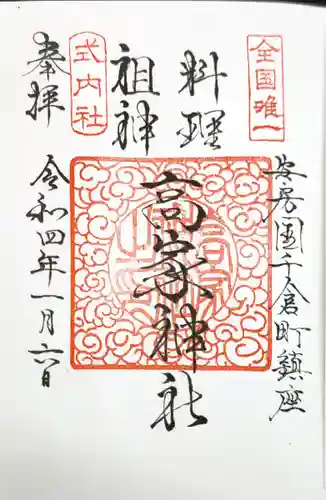 全国唯一
安房国千倉町鎮座
料理
祖神
高家神社
式内社
奉拝
令和四年一月六日